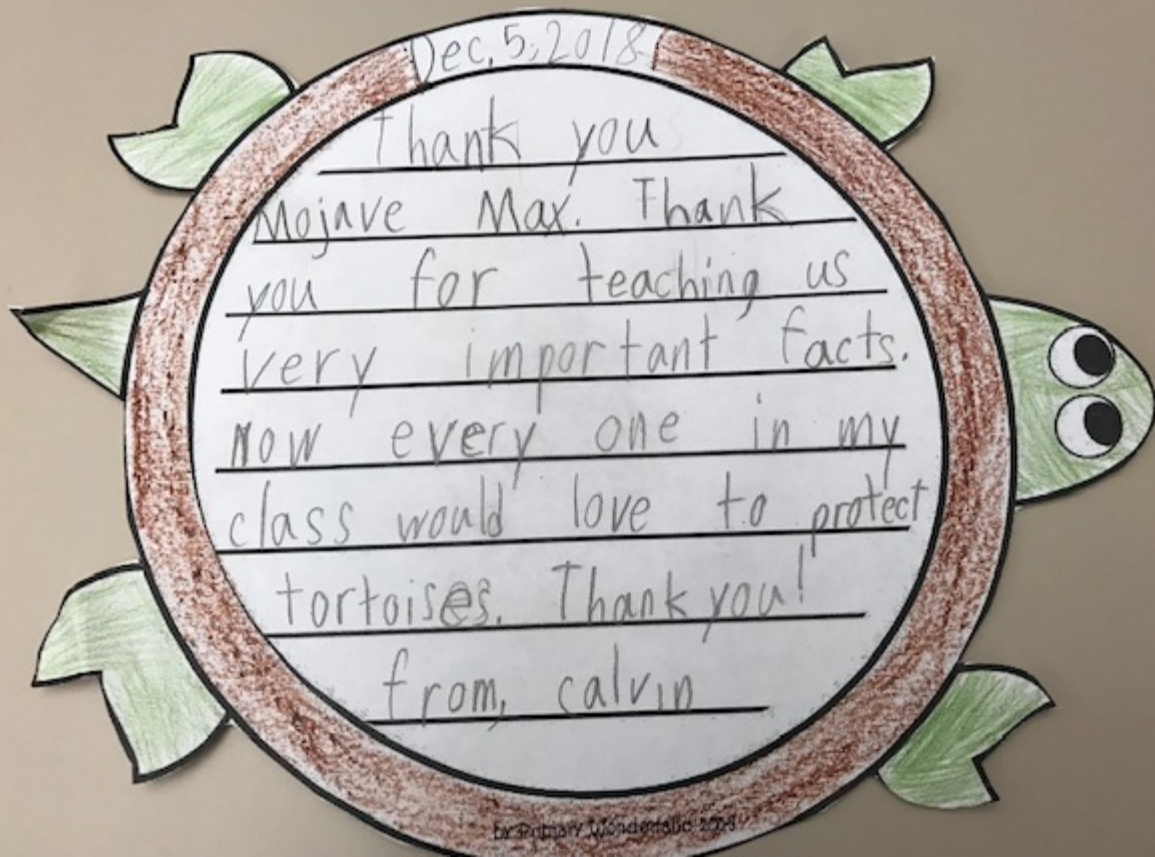 Dec, 5, 2018
Thank you
Mojave Max. Thank
you for teaching us
very important facts.
now every one in my
class would love to protect
tortoises. Thank you!
from, calvin
by Primary